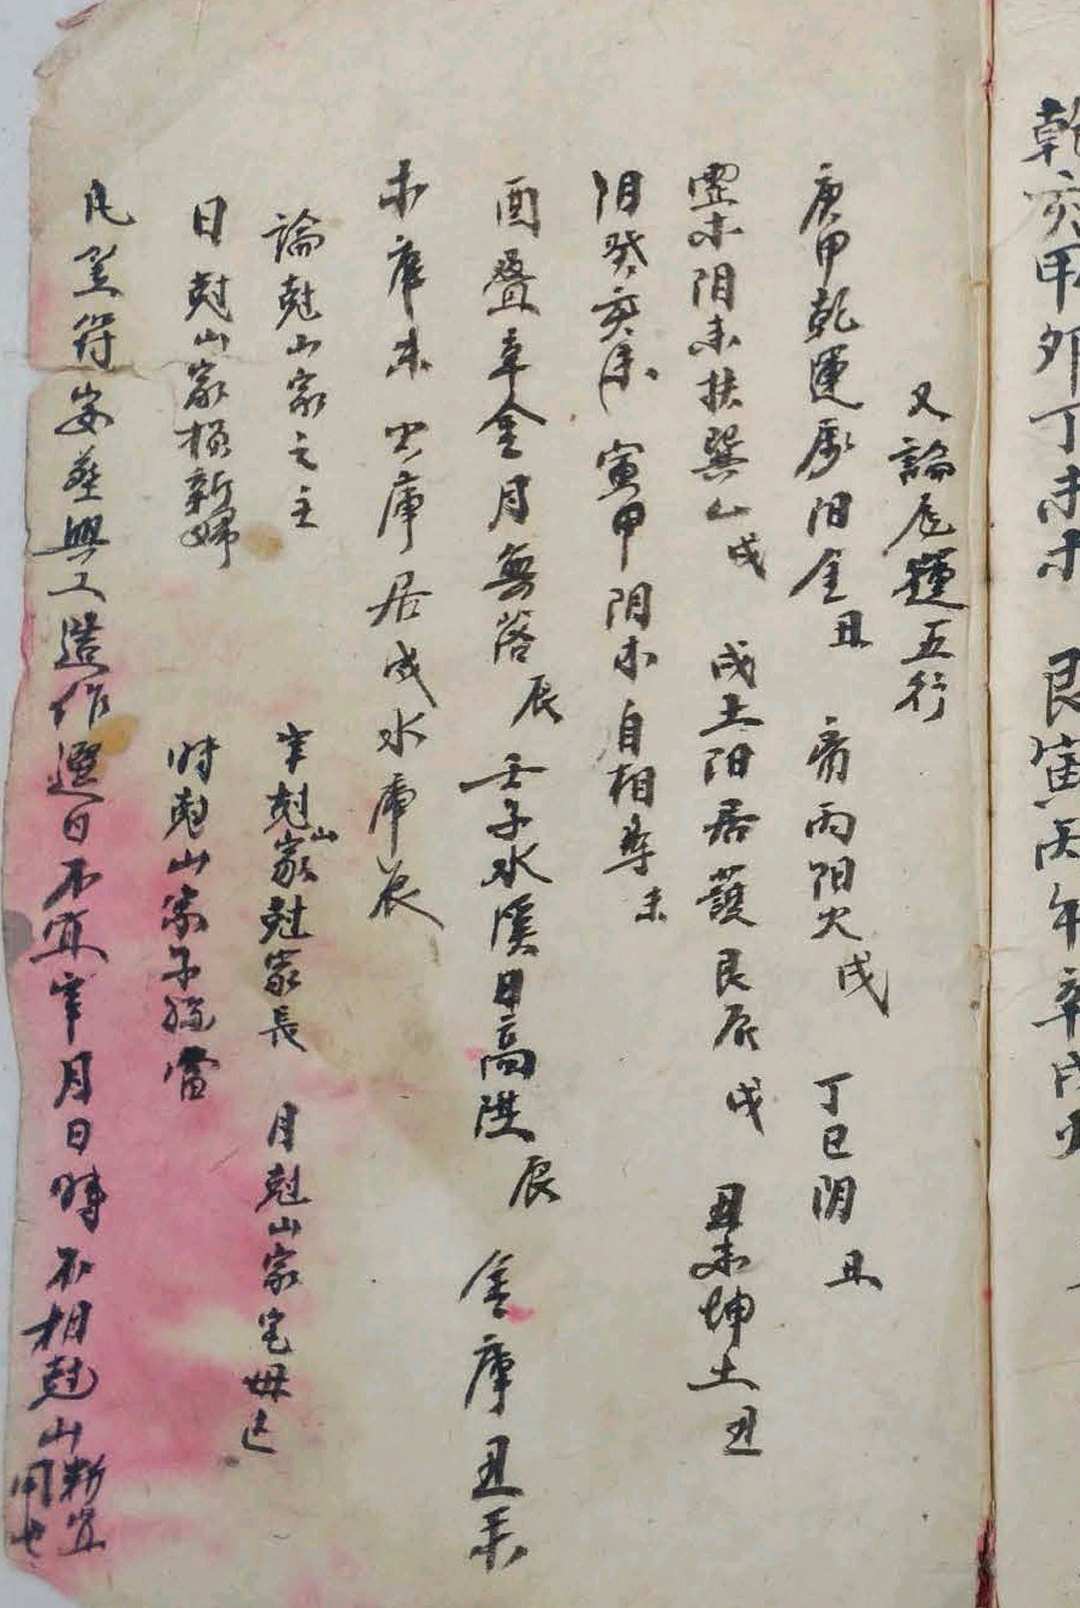 乾亥甲卯丁未木 艮寅丙午辛戌火
又論尨運五行
庚甲乾運属阳金丑 丙阳火戌 丁巳阴丑
木阴未扶巽山戌 戌土阳居護艮辰戌 丑未坤土丑
阴癸亥未 寅甲阴木自相尋未
酉叠辛金月無落辰 壬子水溪日高洪辰 金庫丑未
木庫未 火庫居戌水庫辰
論尅山家之主 年尅山家尅家長 月尅山家宅母
日尅山家損新婦 时尅山家子孫當
凡竖符安葬興工造作選日不宜年月日時不相尅山斯宜用也